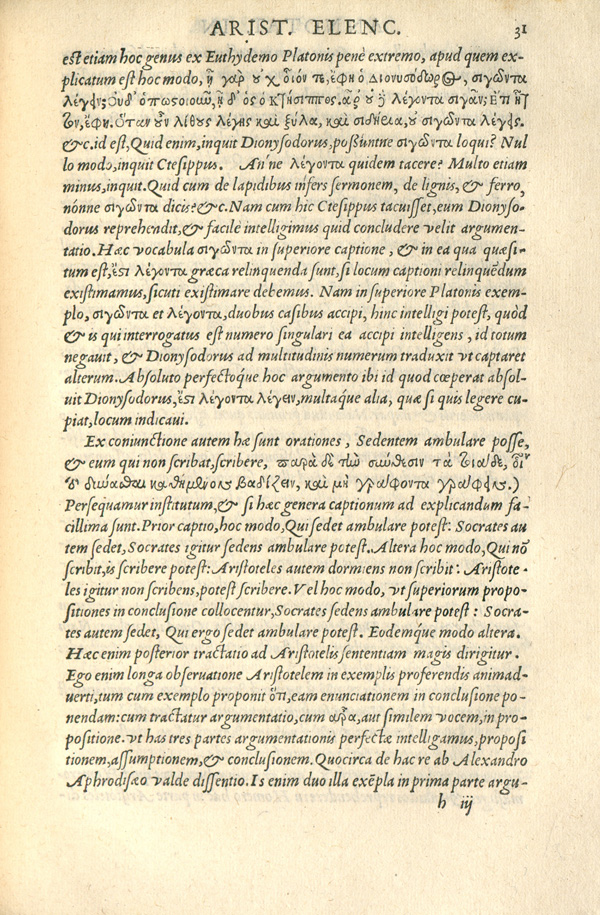 ARIST. ELENC. 31
est etiam hoc genus ex Euthydemo Platonis penè extremo, apud quem ex-
plicatum est hoc modo, ἢ γὰρ οὐχ οἷόν τε, ἔφη ὁ Διονυσόδωρος, σιγῶντα
λέγειν; Οὐδ' ὁπωστιοιοῦν, ἦ δ' ὃς ὁ Κτήσιππος. ἆρ' οὐδὲ λέγοντα σιγᾶν; Ἔτι ἧτ
τον, ἔφη. Ὅταν οὖν λίθους λέγῃς καὶ ξύλα, καὶ σιδήεια, οὐ σιγῶντα λέγεις.
&c. id est, Quid enim, inquit Dionysodorus, possuntne σιγῶντα loqui? Nul
lo modo, inquit Ctesippus. An'ne λέγοντα quidem tacere? Multo etiam
minus, inquit. Quid cum de lapidibus infers sermonem, de lignis, & ferro,
nónne σιγῶντα dicis? &c. Nam cum hic Ctesippus tacuisset, eum Dionyso-
dorus reprehendit, & facilè intelligimus quid concludere velit argumen-
tatio. Hæc vocabula σιγῶντα in superiore captione, & in ea qua quæsi-
tum est, ἔστι λέγοντα græca relinquenda sunt, si locum captioni relinquẽdum
existimamus, sicuti existimare debemus. Nam in superiore Platonis exem-
plo, σιγῶντα et λέγοντα, duobus casibus accipi, hinc intelligi potest, quòd
& is qui interrogatus est numero singulari ea accipi intelligens, id totum
negauit, & Dionysodorus ad multitudinis numerum traduxit vt captaret
alterum. Absoluto perfectoque hoc argumento ibi id quod cœperat absol-
uit Dionysodorus, ἔστι λέγοντα λέγειν, multaque alia, quæ si quis legere cu-
piat, locum indicaui.
Ex coniunctione autem hæ sunt orationes, Sedentem ambulare posse,
& eum qui non scribat, scribere, παρὰ δὲ τὴν σύνθεσιν τὰ τοιάδε, οἷον
τὸ δύνασθαι καθήμενον βαδίζειν, καὶ μὴ γράφοντα γράφειν.)
Persequamur institutum, & si hæc genera captionum ad explicandum fa-
cillima sunt. Prior captio, hoc modo, Qui sedet ambulare potest: Socrates au
tem sedet, Socrates igitur sedens ambulare potest. Altera hoc modo, Qui nõ
scribit, is scribere potest: Aristoteles autem dormiens non scribit: Aristote-
les igitur non scribens, potest scribere. Vel hoc modo, vt superiorum propo-
sitiones in conclusione collocentur, Socrates sedens ambulare potest: Socra-
tes autem sedet, Qui ergo sedet ambulare potest. Eodemq́ue modo altera.
Hæc enim posterior tractatio ad Aristotelis sententiam magis dirigitur.
Ego enim longa obseruatione Aristotelem in exemplis proferendis animad-
uerti, tum cum exemplo proponit ὅτι, eam enunciationem in conclusione po-
nendam: cum tractatur argumentatio, cum ἆρα, aut similem vocem, in pro-
positione. vt has tres partes argumentationis perfectæ intelligamus, proposi
tionem, assumptionem, & conclusionem. Quocirca de hac re ab Alexandro
Aphrodisæo valde dissentio. Is enim duo illa exẽpla in prima parte argu-
h iij